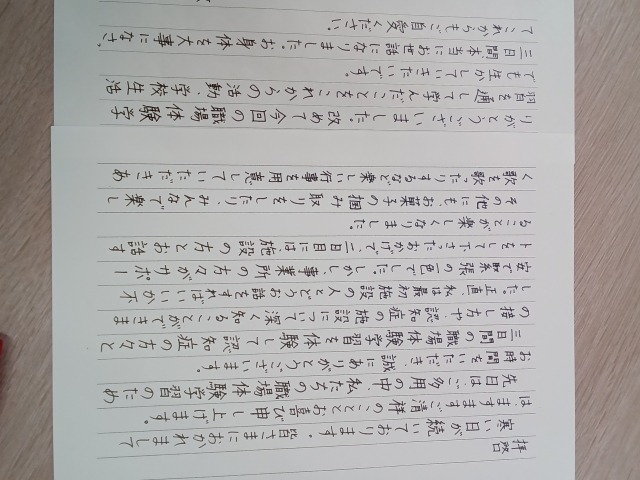 拝啓
寒い日が続いております。皆さまにおかれまして
は、ますますご清祥のこととお喜び申し上げます。
先日はご多用の中、私たちの職場体験学習のため
お時間をいただき、誠にありがとうございます。
三日間の職場体験学習を体験して認知症の方々と
の接し方や認知症の施設について深く知ることができま
した。正直、私は最初施設の人とどうお話をすればいいか不
安で緊張の一色でした。しかし、事業所の方々がサポー
トをして下さったおかげで、二日目には施設の方々とお話す
ることが楽しくなりました。
その他にも、お菓子の掴み取りをしたり、みんなで楽し
く歌を歌ったりするなど楽しい行事を用意していただきあ
りがとうございました。改めて今回の職場体験学
習を通して学んだことをこれからの活動、学校生活
でも生かしていきたいです。
三日間、本当にお世話になりました。お身体を大事になさっ
てこれからもご自愛ください。